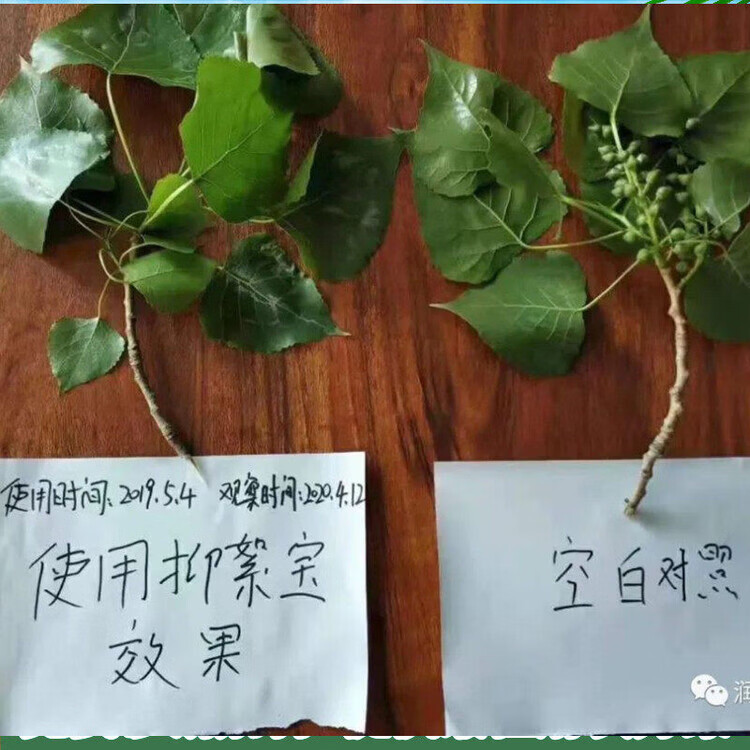 使用时间:2019.5.4 观察时间:2020.4.12
使用抑絮宝
效果
空白对照
润